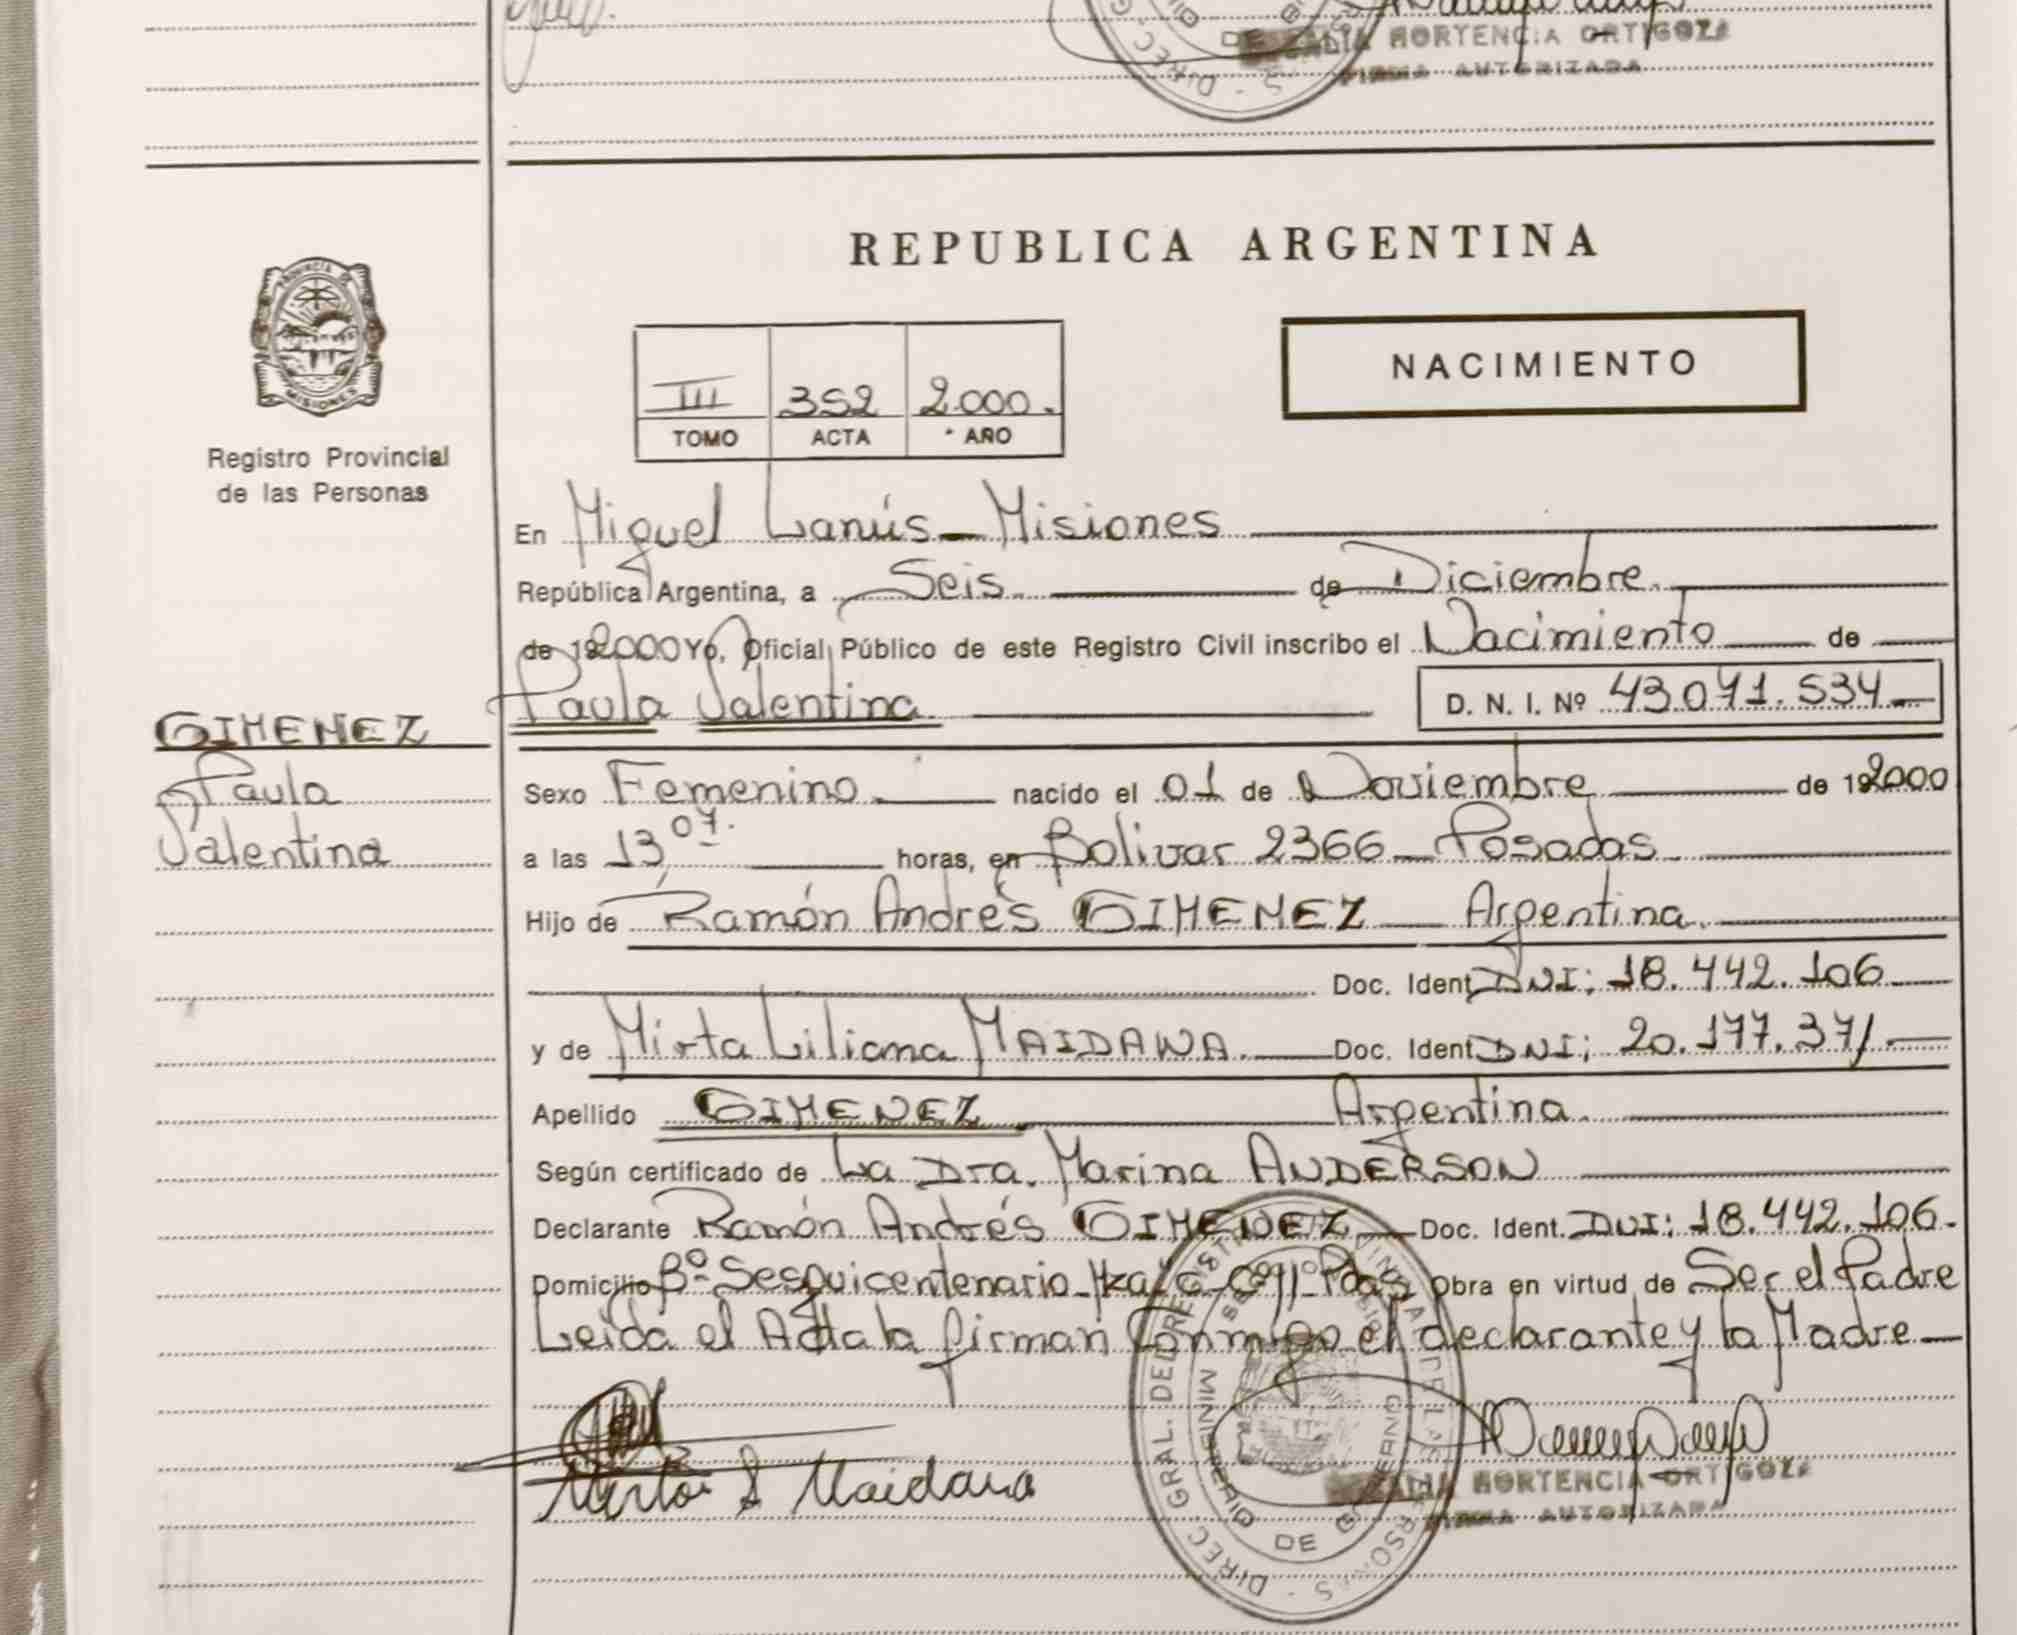 HORTENCIA ORTIGOZA
FIRMA AUTORIZADA
REPUBLICA ARGENTINA
PROVINCIA DE
MISIONES
Registro Provincial
de las Personas
NACIMIENTO
III 352 2.000.
TOMO ACTA AÑO
En Miguel Lanús - Misiones
República Argentina, a Seis de Diciembre.
de 192000 Yo, Oficial Público de este Registro Civil inscribo el Nacimiento de
Paula Valentina D. N. I. Nº 43.071.534
GIMENEZ
Paula
Valentina
Sexo Femenino nacido el 01 de Noviembre de 192000
a las 13 07. horas, en Bolivar 2366 - Posadas
Hijo de Ramón Andrés GIMENEZ - Argentina.
Doc. Ident. DNI: 18.442.106
y de Mirta Liliana MAIDANA. Doc. Ident. DNI: 20.177.371
Apellido GIMENEZ Argentina.
Según certificado de La Dra. Marina ANDERSON
Declarante Ramón Andrés GIMENEZ Doc. Ident. DNI: 18.442.106.
Domicilio Bº Sesquicentenario - Pdas Obra en virtud de Ser el Padre
Leída el Acta la firman Conmigo el declarante y la Madre
Mirta L Maidana
HORTENCIA ORTIGOZA
FIRMA AUTORIZADA
DIREC. GRAL. DEL REGISTRO PROVINCIAL DE LAS PERSONAS
MINISTERIO DE GOBIERNO